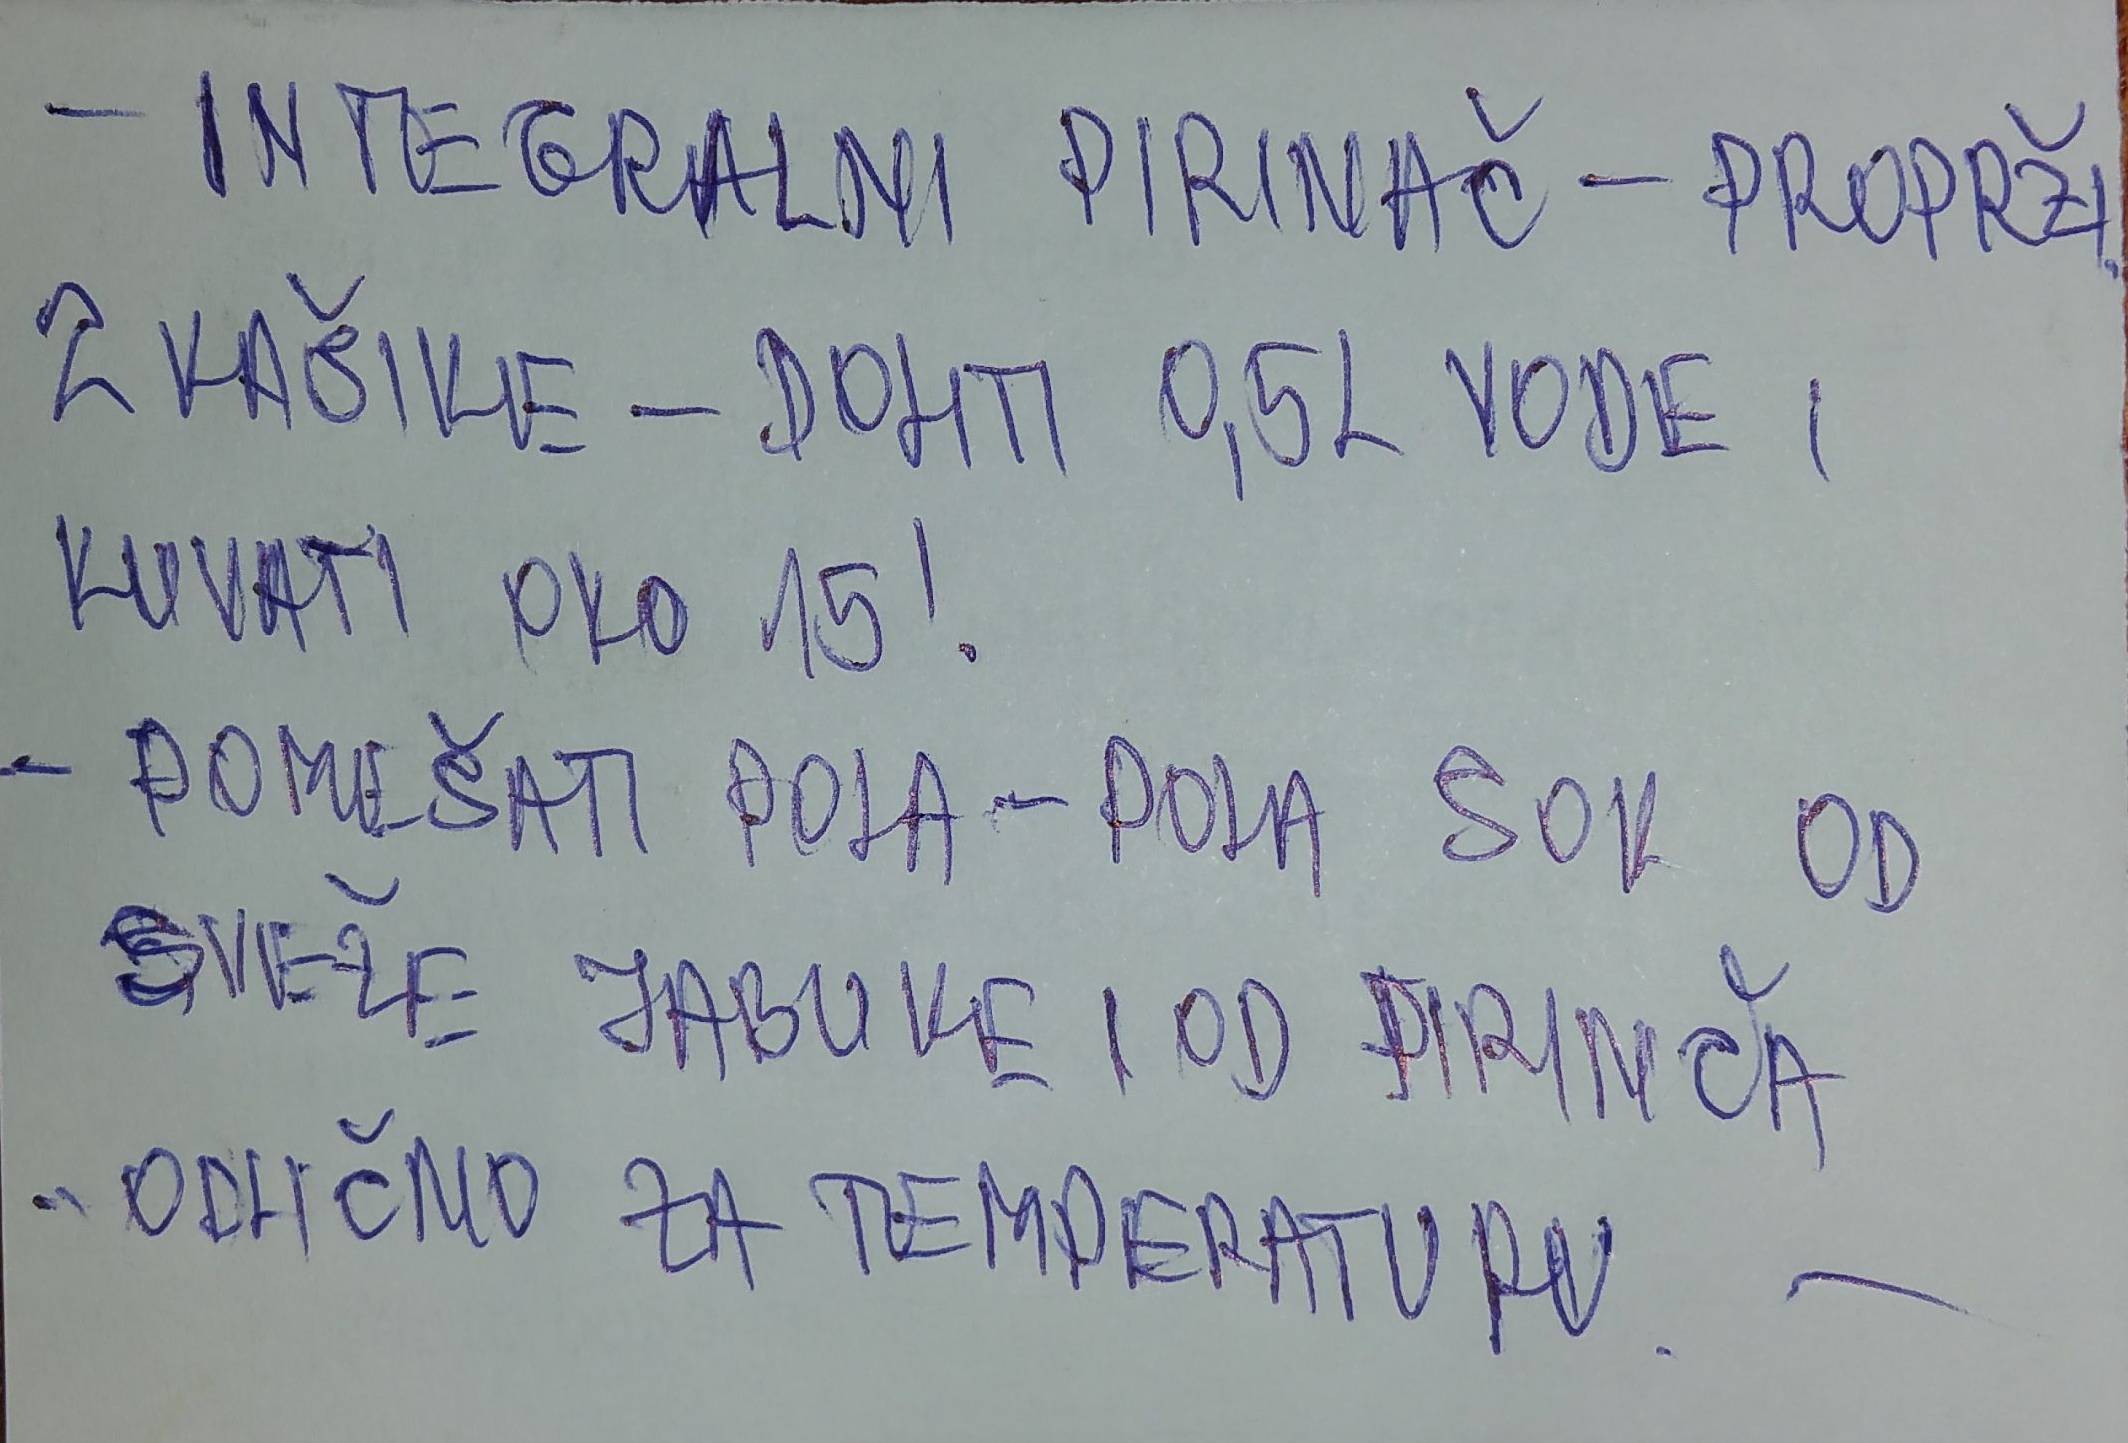 - INTEGRALNI PIRINAČ - PROPRŽI.
2 KAŠIKE - DOLITI 0,5L VODE I
KUVATI OKO 15'.
- POMEŠATI POLA - POLA SOK OD
SVEŽE JABUKE I OD PIRINČA
- ODLIČNO ZA TEMPERATURU. -